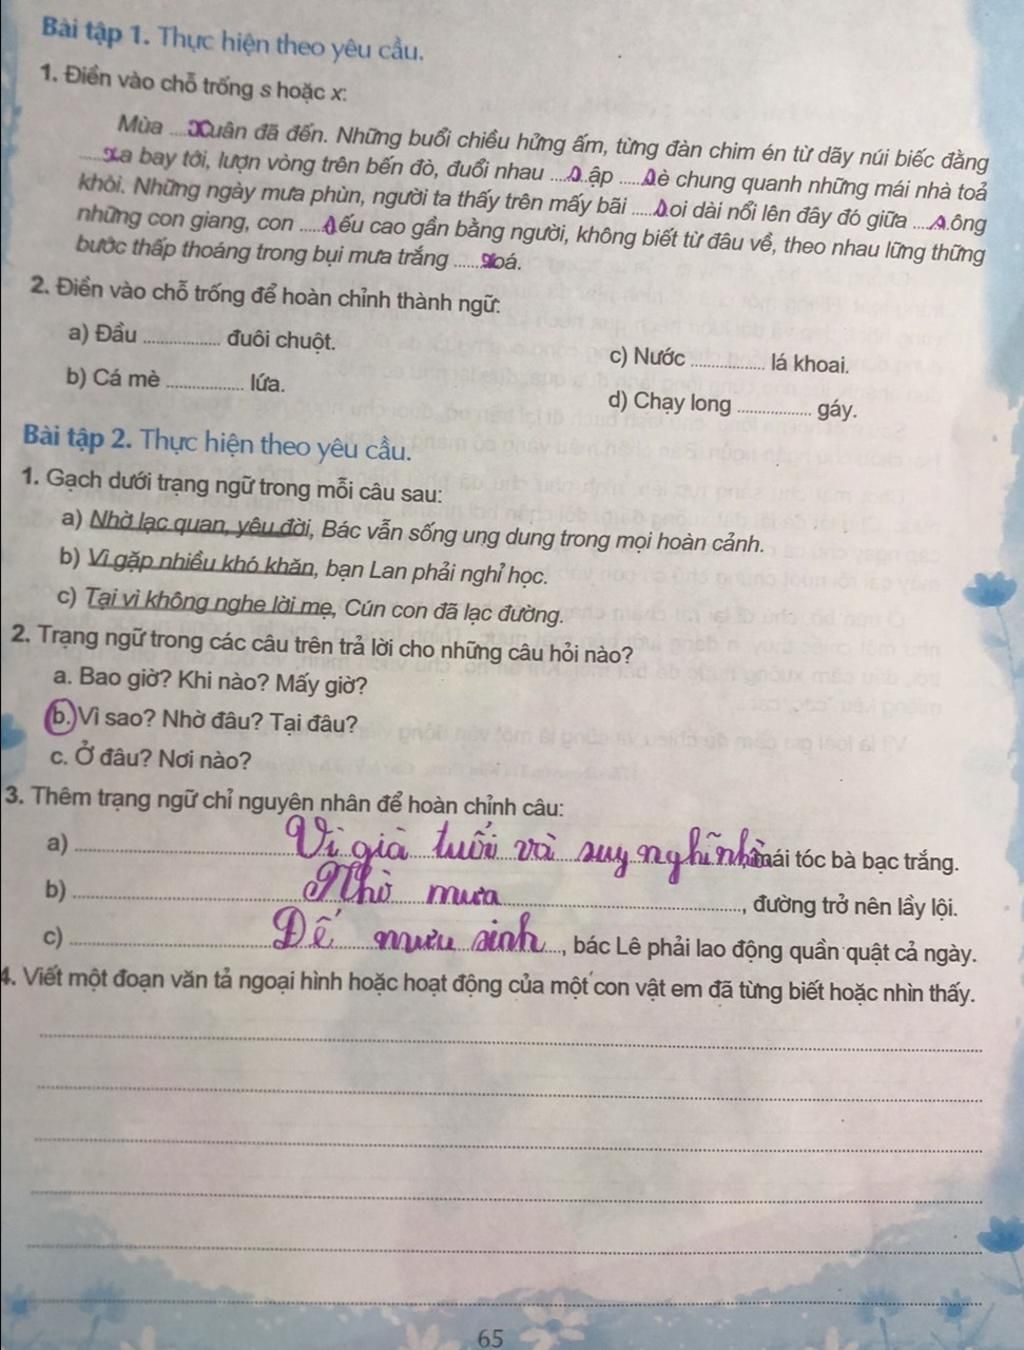 Bài tập 1. Thực hiện theo yêu cầu.
1. Điền vào chỗ trống s hoặc x:
Mùa ....Xuân đã đến. Những buổi chiều hửng ấm, từng đàn chim én từ dãy núi biếc đằng
.....xa bay tới, lượn vòng trên bến đò, đuổi nhau ....s.ập .....sè chung quanh những mái nhà toả
khói. Những ngày mưa phùn, người ta thấy trên mấy bãi .....soi dài nổi lên đây đó giữa ....s.ông
những con giang, con .....sếu cao gần bằng người, không biết từ đâu về, theo nhau lững thững
bước thấp thoáng trong bụi mưa trắng ......xoá.
2. Điền vào chỗ trống để hoàn chỉnh thành ngữ:
a) Đầu ................. đuôi chuột.
c) Nước ................. lá khoai.
b) Cá mè ................. lứa.
d) Chạy long ................. gáy.
Bài tập 2. Thực hiện theo yêu cầu.
1. Gạch dưới trạng ngữ trong mỗi câu sau:
a) Nhờ lạc quan, yêu đời, Bác vẫn sống ung dung trong mọi hoàn cảnh.
b) Vì gặp nhiều khó khăn, bạn Lan phải nghỉ học.
c) Tại vì không nghe lời mẹ, Cún con đã lạc đường.
2. Trạng ngữ trong các câu trên trả lời cho những câu hỏi nào?
a. Bao giờ? Khi nào? Mấy giờ?
b. Vì sao? Nhờ đâu? Tại đâu?
c. Ở đâu? Nơi nào?
3. Thêm trạng ngữ chỉ nguyên nhân để hoàn chỉnh câu:
a) Vì già tuổi và suy nghĩ nhiều, mái tóc bà bạc trắng.
b) Nhờ mưa, đường trở nên lầy lội.
c) Để mưu sinh, bác Lê phải lao động quần quật cả ngày.
4. Viết một đoạn văn tả ngoại hình hoặc hoạt động của một con vật em đã từng biết hoặc nhìn thấy.
65